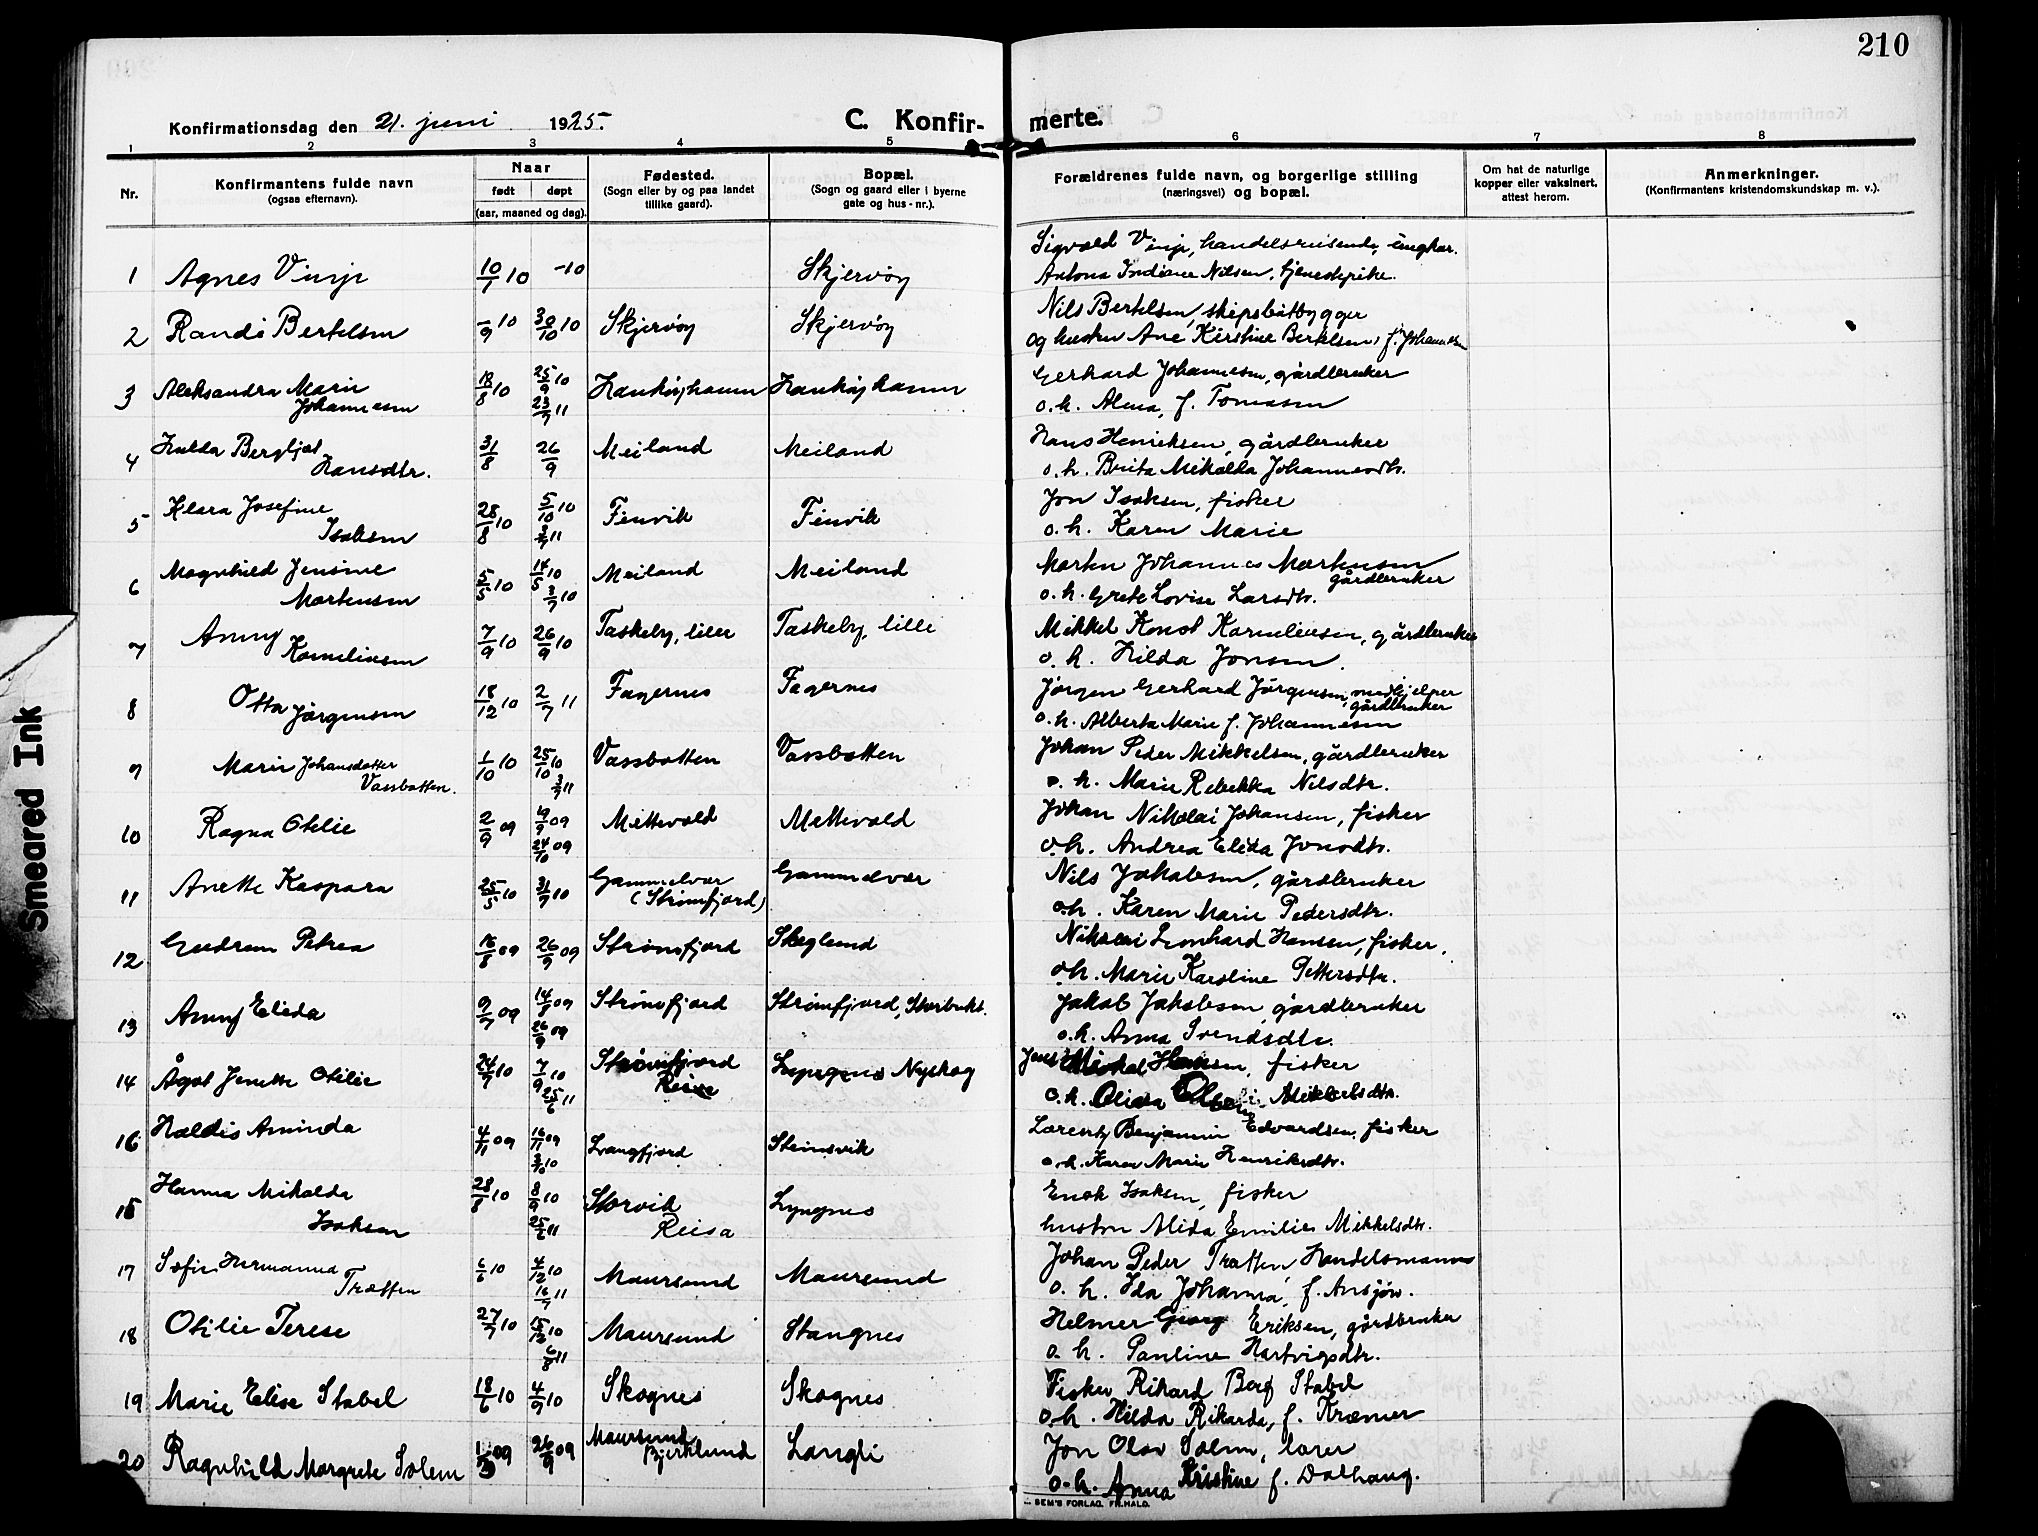 210
Konfirmationsdag den 21. juni 1925.
C. Konfirmerte.
1 2 3 4 5 6 7 8
Nr.
Konfirmantens fulde navn
(ogsaa efternavn).
Naar
født døpt
(aar, maaned og dag).
Fødested.
(Sogn eller by og paa landet
tillike gaard).
Bopæl.
(Sogn og gaard eller i byerne
gate og hus-nr.).
Forældrenes fulde navn, og borgerlige stilling
(næringsvei) og bopæl.
Om hat de naturlige
kopper eller vaksinert,
attest herom.
Anmerkninger.
(Konfirmantens kristendomskundskap m. v.).
Sigvald Vinje, handelsreisende, ungkar.
1 Agnes Vinje 10/7 10 -10 Skjervöy
Antona Indiane Nilsen, tjenestepike.
Nils Bertelsen, skipsbåtbygger
2 Randi Bertelsen -/9 10 30/10 10 Skjervöy Skjervöy
og hustru Ane Kirstine Bertelsen, f. Johannesen
Gerhard Johannesen, gårdbruker
3 Aleksandra Marie Johannesen 18/8 10 25/9 10 23/7 11 Haukøyhamn Haukøyhamn
o. h. Alma, f. Tomasen
Hans Henriksen, gårdbruker
4 Hulda Bergljot Hansdtr. 31/8 26/9 Meiland Meiland
o. h. Brita Mikalda Johannesdtr.
Jon Isaksen, fisker
5 Klara Josefine Isaksen 28/8 10 5/10 10 2/7 11 Finvik Finvik
o. h. Karen Marie
Morten Johannes Mortensen gårdbruker
6 Magnhild Jensine Mortensen 5/5 10 14/5 10 3/7 10 Meiland Meiland
o. h. Grete Lovise Larsdtr.
Mikkel Konst Kornelinsen, gårdbruker
7 Anny Korneliusen 7/9 10 26/9 10 Taskeby, lille Taskeby, lille
o. h. Hilda Jonsen.
Jørgen Gerhard Jørgensen, medhjelper gårdbruker
8 Otta Jørgensen 18/12 10 2/7 11 Fagernes Fagernes
o. h. Alberta Marie f. Johannesen
Johan Peder Mikkelsen, gårdbruker
9 Marie Johansdatter Vassbotten. 1/10 10 25/10 10 2/7 11 Vassbotten Vassbotten
o. h. Marie Rebekka Nilsdtr.
Johan Nikolai Johansen, fisker
10 Ragna Otilie 2/9 09 19/9 09 24/10 09 Mettevold Mettevold
o. h. Andrea Elida Jonsdtr.
Nils Jakobsen, gårdbruker
11 Anette Kaspara 25/5 10 31/7 10 Gammelvær (Strømfjord) Gammelvær
o. h. Karen Marie Pedersdtr.
Nikolai Leonhard Hansen, fisker.
12 Gudrun Petrea 16/8 09 26/9 09 Strømfjord Skoglund
o. h. Marie Karoline Pettersdtr.
Jakob Jakobsen, gårdbruker
13 Anny Elida 9/7 09 14/8 09 26/9 09 Strømfjord Strømfjord, Storbukt.
o. h. Anna Svendsdtr.
Jens Mikal Hansen, fisker
14 Ågot Jenette Otilie 24/7 10 7/9 10 25/6 11 Strømfjord Reisa Nyskog
o. h. Mikkelsdtr.
Lorenty Benjamin Edvardsen, fisker
16 Haldis Aminda 4/11 09 16/11 09 3/7 10 Langfjord Steinsvik
o. h. Karen Marie Henriksdtr.
Enok Isaksen, fisker
15 Hanna Mikalda Isaksen 28/8 10 8/9 10 25/6 11 Storvik Reisa Lyngnes
hustru Alida Emilie Mikkelsdtr.
Johan Peder Trætten, Handelsmann
17 Sofie Hermanna Trætten 6/6 10 4/12 10 16/7 11 Maursund Maursund
o. h. Ida Johanna, f. Ansjøn.
Helmer Georg Eriksen, gårdbruker
18 Otilie Terese 27/7 10 15/12 10 6/8 11 Maursund Stangnes
o. h. Pauline Hartvigsdtr.
Fisker Rikard Berg Stabel
19 Marie Elise Stabel 18/6 10 4/9 10 Skognes Skognes
o. h. Hilda Rikarda, f. Kræmer
Jon Olav Solem, lærer
20 Ragnhild Margrete Solem 09 26/9 09 Maursund Bjerklund Langli
o. h. Anna Kristine f. Dalhaug.
SEM'S FORLAG. FR.HALD.
Smeared Ink